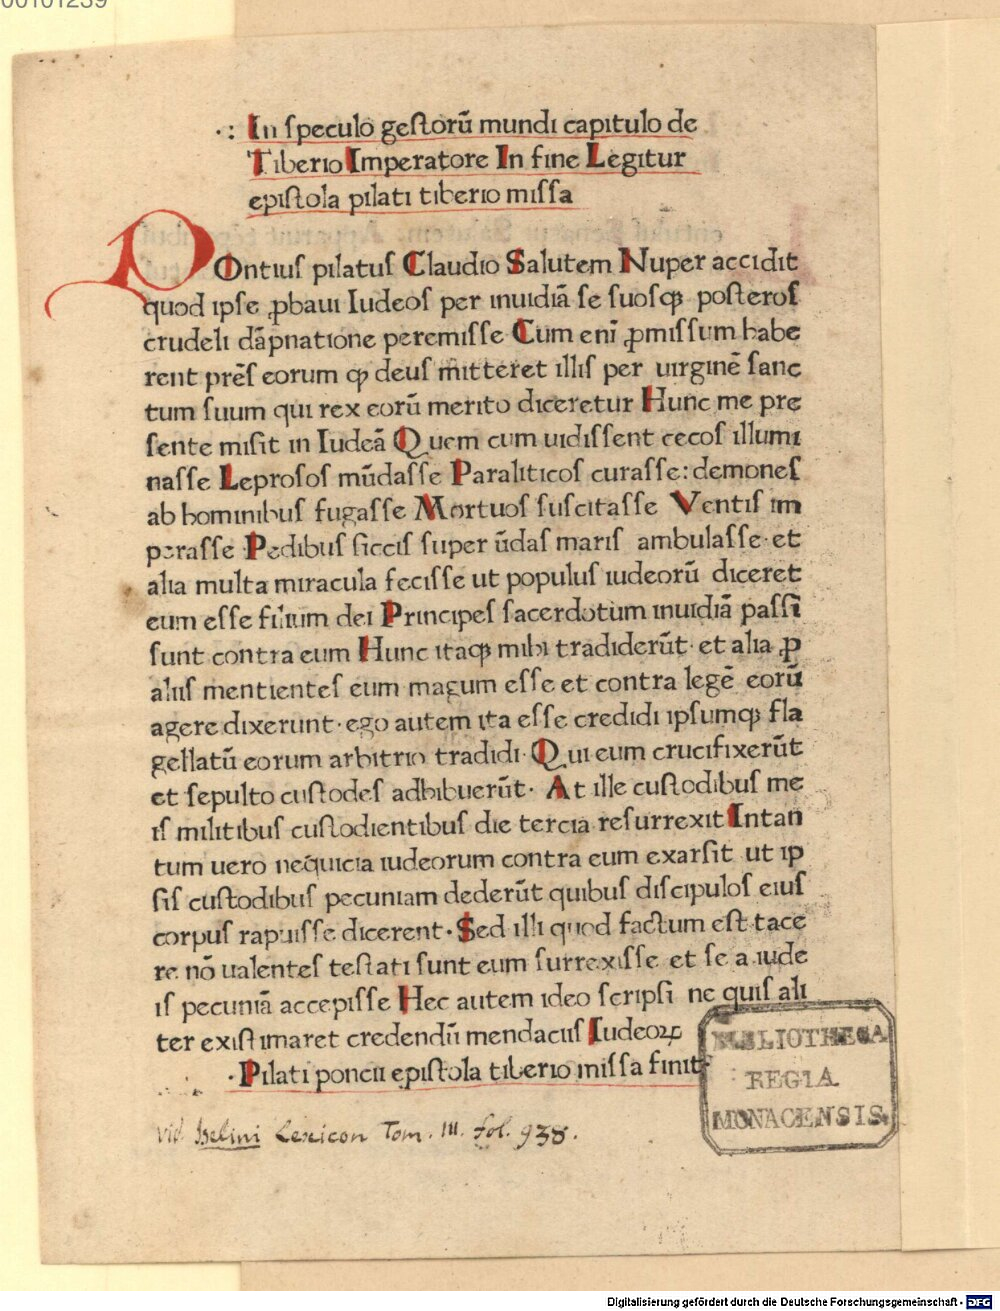 00101239
·: In speculo gestorū mundi capitulo de
Tiberio Imperatore In fine Legitur
epistola pilati tiberio missa
POntius pilatus Claudio Salutem Nuper accidit
quod ipse ꝓbaui Iudeos per inuidiā se suosqꝫ posteros
crudeli dāpnatione peremisse Cum enī ꝓmissum habe
rent prēs eorum qꝫ deus mitteret illis per uirginē sanc
tum suum qui rex eorū merito diceretur Hunc me pre
sente misit in Iudeā Quem cum uidissent cecos illumi
nasse Leprosos mūdasse Paraliticos curasse: demones
ab hominibus fugasse Mortuos suscitasse Ventis im
perasse Pedibus siccis super ūdas maris ambulasse· et
alia multa miracula fecisse ut populus iudeorū diceret
eum esse filium dei Principes sacerdotum inuidiā passī
sunt contra eum Hunc itaqꝫ mihi tradiderūt· et alia ꝓ
aliis mentientes eum magum esse et contra legē eorū
agere dixerunt· ego autem ita esse credidi ipsumqꝫ fla
gellatū eorum arbitrio tradidi· Qui eum crucifixerūt
et sepulto custodes adhibuerūt· At ille custodibus me
is militibus custodientibus die tercia resurrexit Intan
tum uero nequicia iudeorum contra eum exarsit ut ip
sis custodibus pecuniam dederūt quibus discipulos eius
corpus rapuisse dicerent· Sed illi quod factum est tace
re nō ualentes testati sunt eum surrexisse et se a iude
is pecuniā accepisse Hec autem ideo scripsi ne quis ali
ter existimaret credendū mendaciis Iudeoꝝ
·Pilati poncii epistola tiberio missa finit
BIBLIOTHECA
REGIA
MONACENSIS.
vid. Iselini Lexicon Tom. III. fol. 938.
Digitalisierung gefördert durch die Deutsche Forschungsgemeinschaft - DFG